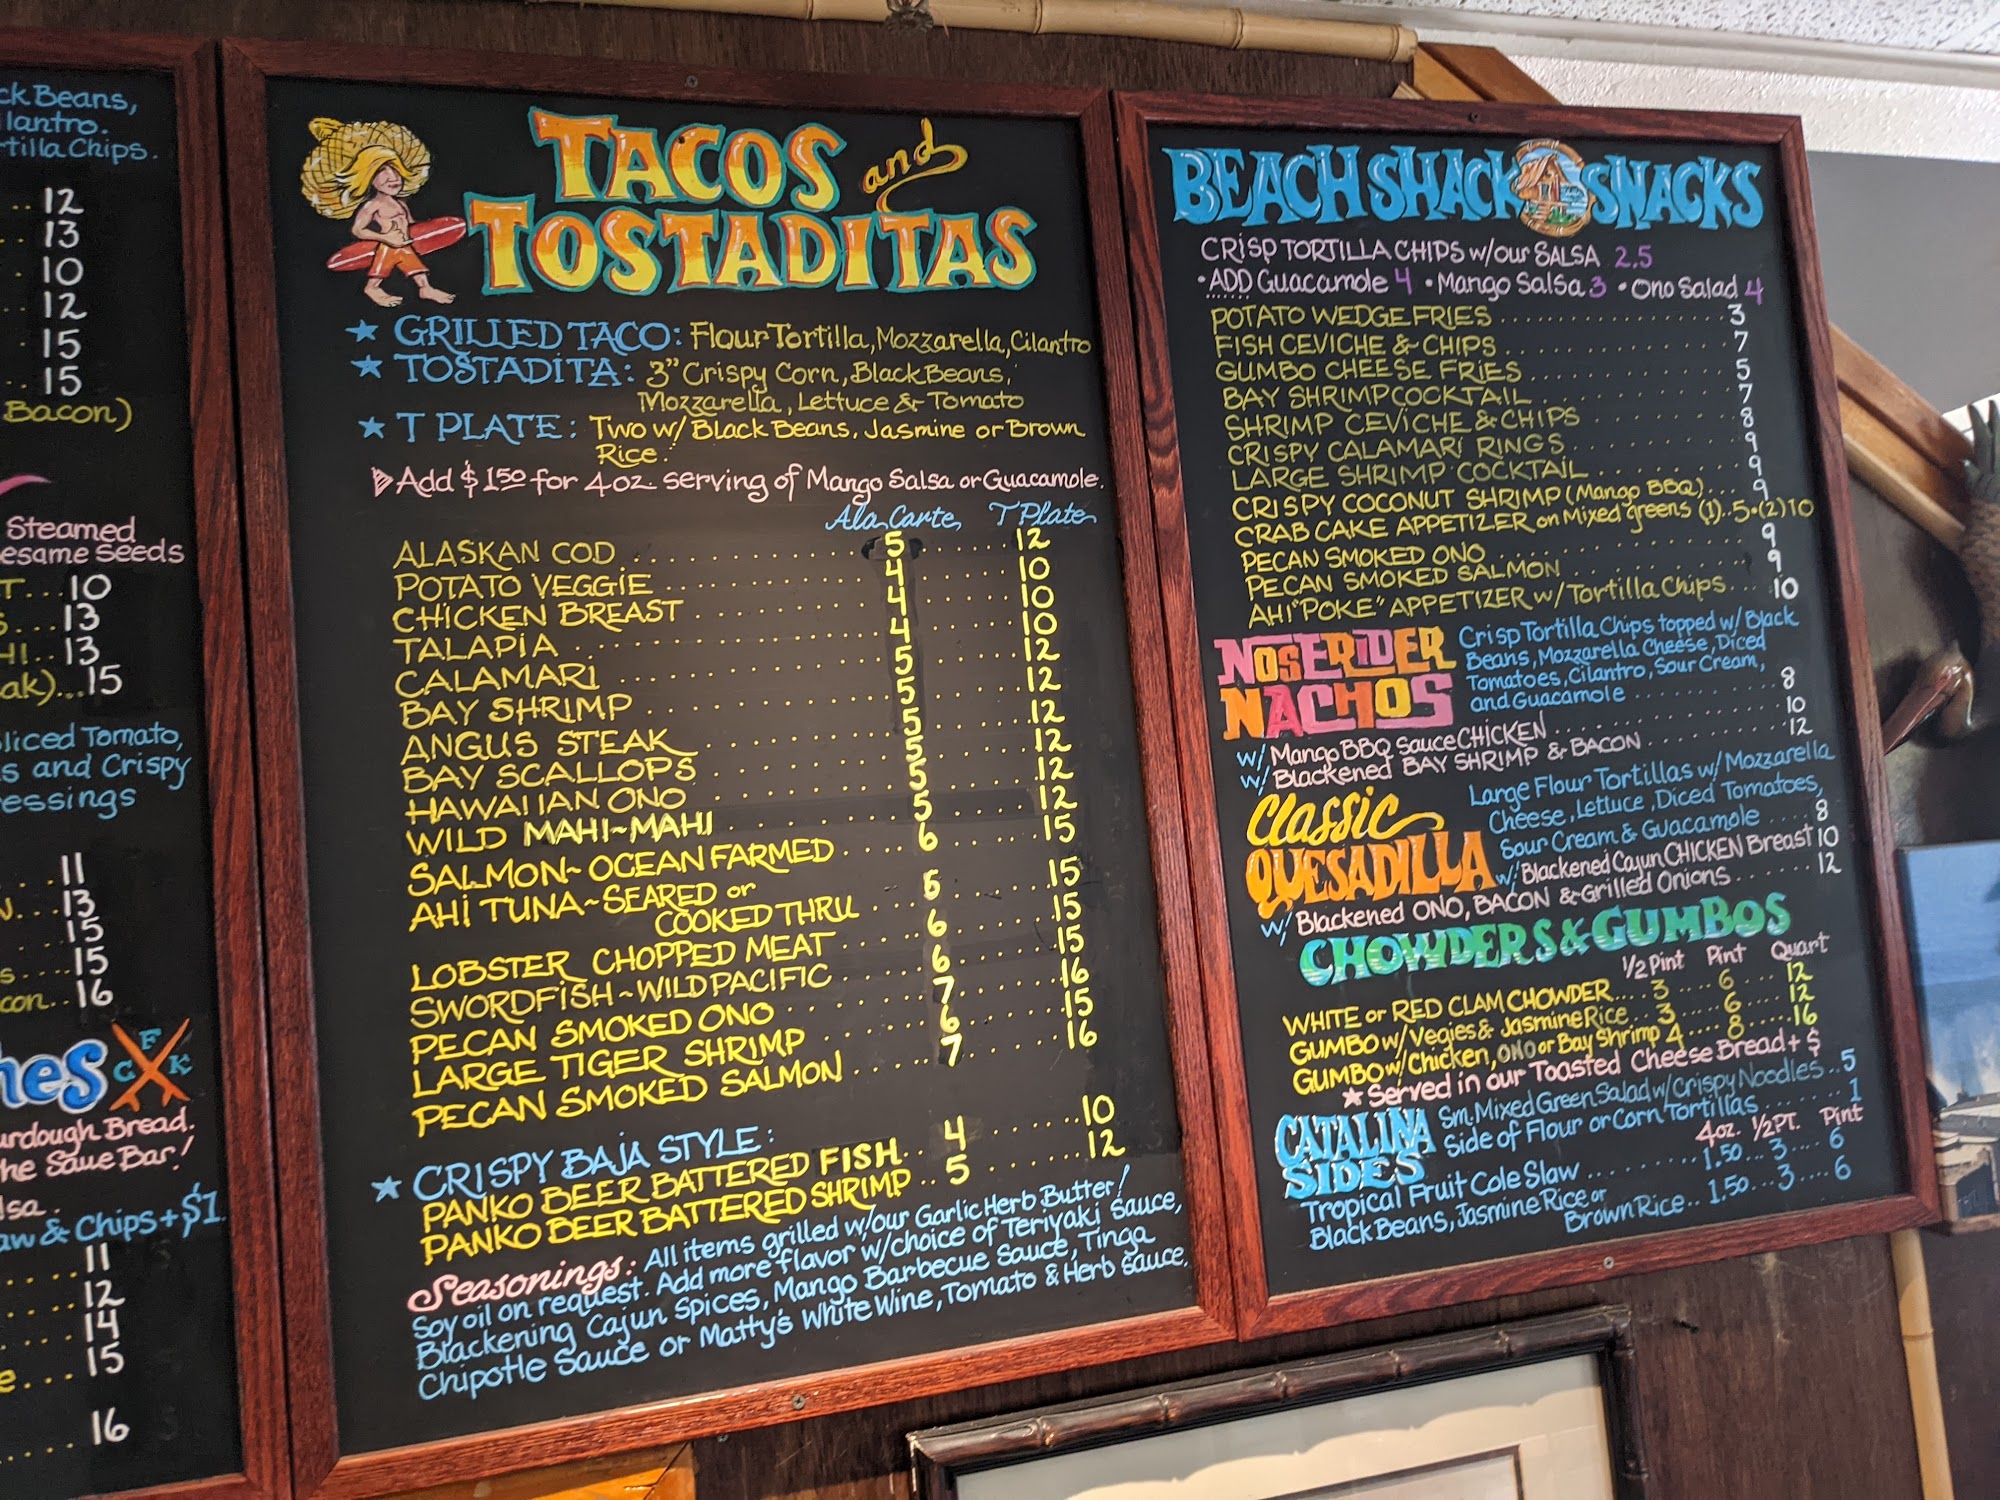 ck Beans,
ilantro.
rtilla Chips.
.. 12
.. 13
10
12
15
.. 15
Bacon)
Steamed
esame Seeds
T... 10
S... 13
HI.. 13
ak)... 15
liced Tomato,
s and Crispy
essings
... 11
... 13
15
s .... 15
con.. 16
hes CFK
urdough Bread.
he Saue Bar!
lsa.
aw & Chips + $1
.... 11
.... 12
.... 14
e... 15
.... 16
TACOS and
TOSTADITAS
★ GRILLED TACO: Flour Tortilla, Mozzarella, Cilantro
★ TOSTADITA: 3" Crispy Corn, Black Beans,
Mozzarella, Lettuce & Tomato
★ T PLATE: Two w/ Black Beans, Jasmine or Brown
Rice.
Add $1.50 for 4oz. serving of Mango Salsa or Guacamole.
Ala Carte T Plate
ALASKAN COD 5 12
POTATO VEGGIE 4 10
CHICKEN BREAST 4 10
TALAPIA 4 10
CALAMARI 5 12
BAY SHRIMP 5 12
ANGUS STEAK 5 12
BAY SCALLOPS 5 12
HAWAIIAN ONO 5 12
WILD MAHI~MAHI 5 12
SALMON~OCEAN FARMED 6 15
AHI TUNA~SEARED or
COOKED THRU 6 15
LOBSTER CHOPPED MEAT 6 15
SWORDFISH~WILD PACIFIC 6 15
PECAN SMOKED ONO 7 16
LARGE TIGER SHRIMP 6 15
PECAN SMOKED SALMON 7 16
★ CRISPY BAJA STYLE:
PANKO BEER BATTERED FISH.. 4 10
PANKO BEER BATTERED SHRIMP.. 5 12
Seasonings: All items grilled w/our Garlic Herb Butter!
Soy oil on request. Add more flavor w/choice of Teriyaki Sauce,
Blackening Cajun Spices, Mango Barbecue Sauce, Tinga
Chipotle Sauce or Matty's White Wine, Tomato & Herb Sauce.
BEACH SHACK SNACKS
CRISP TORTILLA CHIPS w/our SALSA 2.5
• ADD Guacamole 4 • Mango Salsa 3 • Ono Salad 4
POTATO WEDGE FRIES 3
FISH CEVICHE & CHIPS 7
GUMBO CHEESE FRIES 5
BAY SHRIMP COCKTAIL 7
SHRIMP CEVICHE & CHIPS 8
CRISPY CALAMARI RINGS 9
LARGE SHRIMP COCKTAIL 9
CRISPY COCONUT SHRIMP (Mango BBQ) 9
CRAB CAKE APPETIZER on Mixed greens (1)..5•(2)10
PECAN SMOKED ONO 9
PECAN SMOKED SALMON 9
AHI "POKE" APPETIZER w/Tortilla Chips... 10
NOSERIDER NACHOS
Crisp Tortilla Chips topped w/ Black
Beans, Mozzarella Cheese, Diced
Tomatoes, Cilantro, Sour Cream,
and Guacamole 8
w/ Mango BBQ Sauce CHICKEN 10
w/ Blackened BAY SHRIMP & BACON 12
Classic QUESADILLA
Large Flour Tortillas w/ Mozzarella
Cheese, Lettuce, Diced Tomatoes,
Sour Cream & Guacamole .... 8
w/ Blackened Cajun CHICKEN Breast 10
w/ Blackened ONO, BACON & Grilled Onions 12
CHOWDERS & GUMBOS
1/2 Pint Pint Quart
WHITE or RED CLAM CHOWDER.... 3 .... 6 .... 12
GUMBO w/ Vegies & Jasmine Rice... 3 .... 6 .... 12
GUMBO w/ Chicken, ONO or Bay Shrimp 4 .... 8 .... 16
★ Served in our Toasted Cheese Bread + $
CATALINA SIDES
Sm. Mixed Green Salad w/ Crispy Noodles.. 5
Side of Flour or Corn Tortillas 1
4oz. 1/2 PT. Pint
Tropical Fruit Cole Slaw 1.50... 3 .... 6
Black Beans, Jasmine Rice or
Brown Rice.. 1.50... 3 .... 6